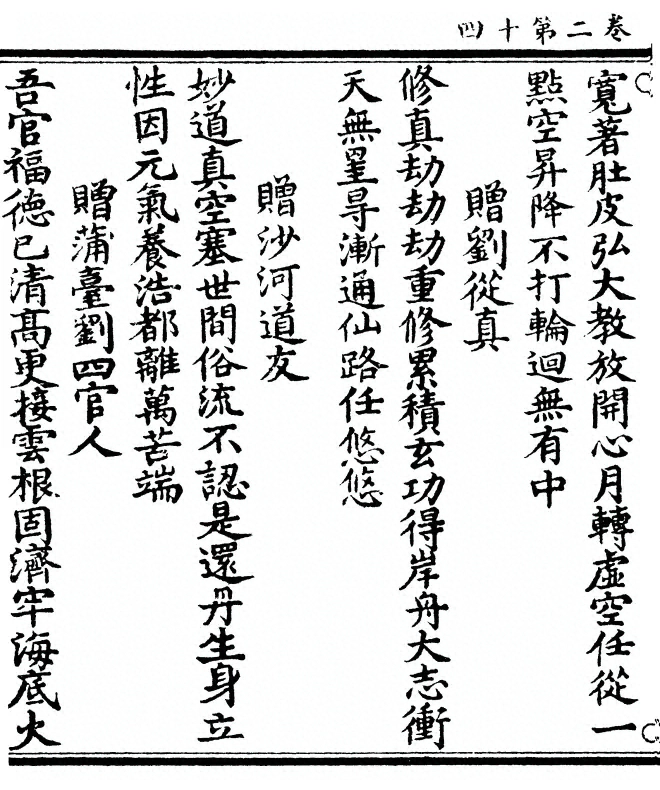 卷二第十四
寬著肚皮弘大教放開心月轉虛空任從一
點空昇降不打輪迴無有中
贈劉從真
修真劫劫劫重修累積玄功得岸舟大志衝
天無罣㝵漸通仙路任悠悠
贈沙河道友
妙道真空塞世間俗流不認是還丹生身立
性因元氣養浩都離萬苦端
贈蒲臺劉四官人
吾官福德已清髙更接雲根固濟牢海底火